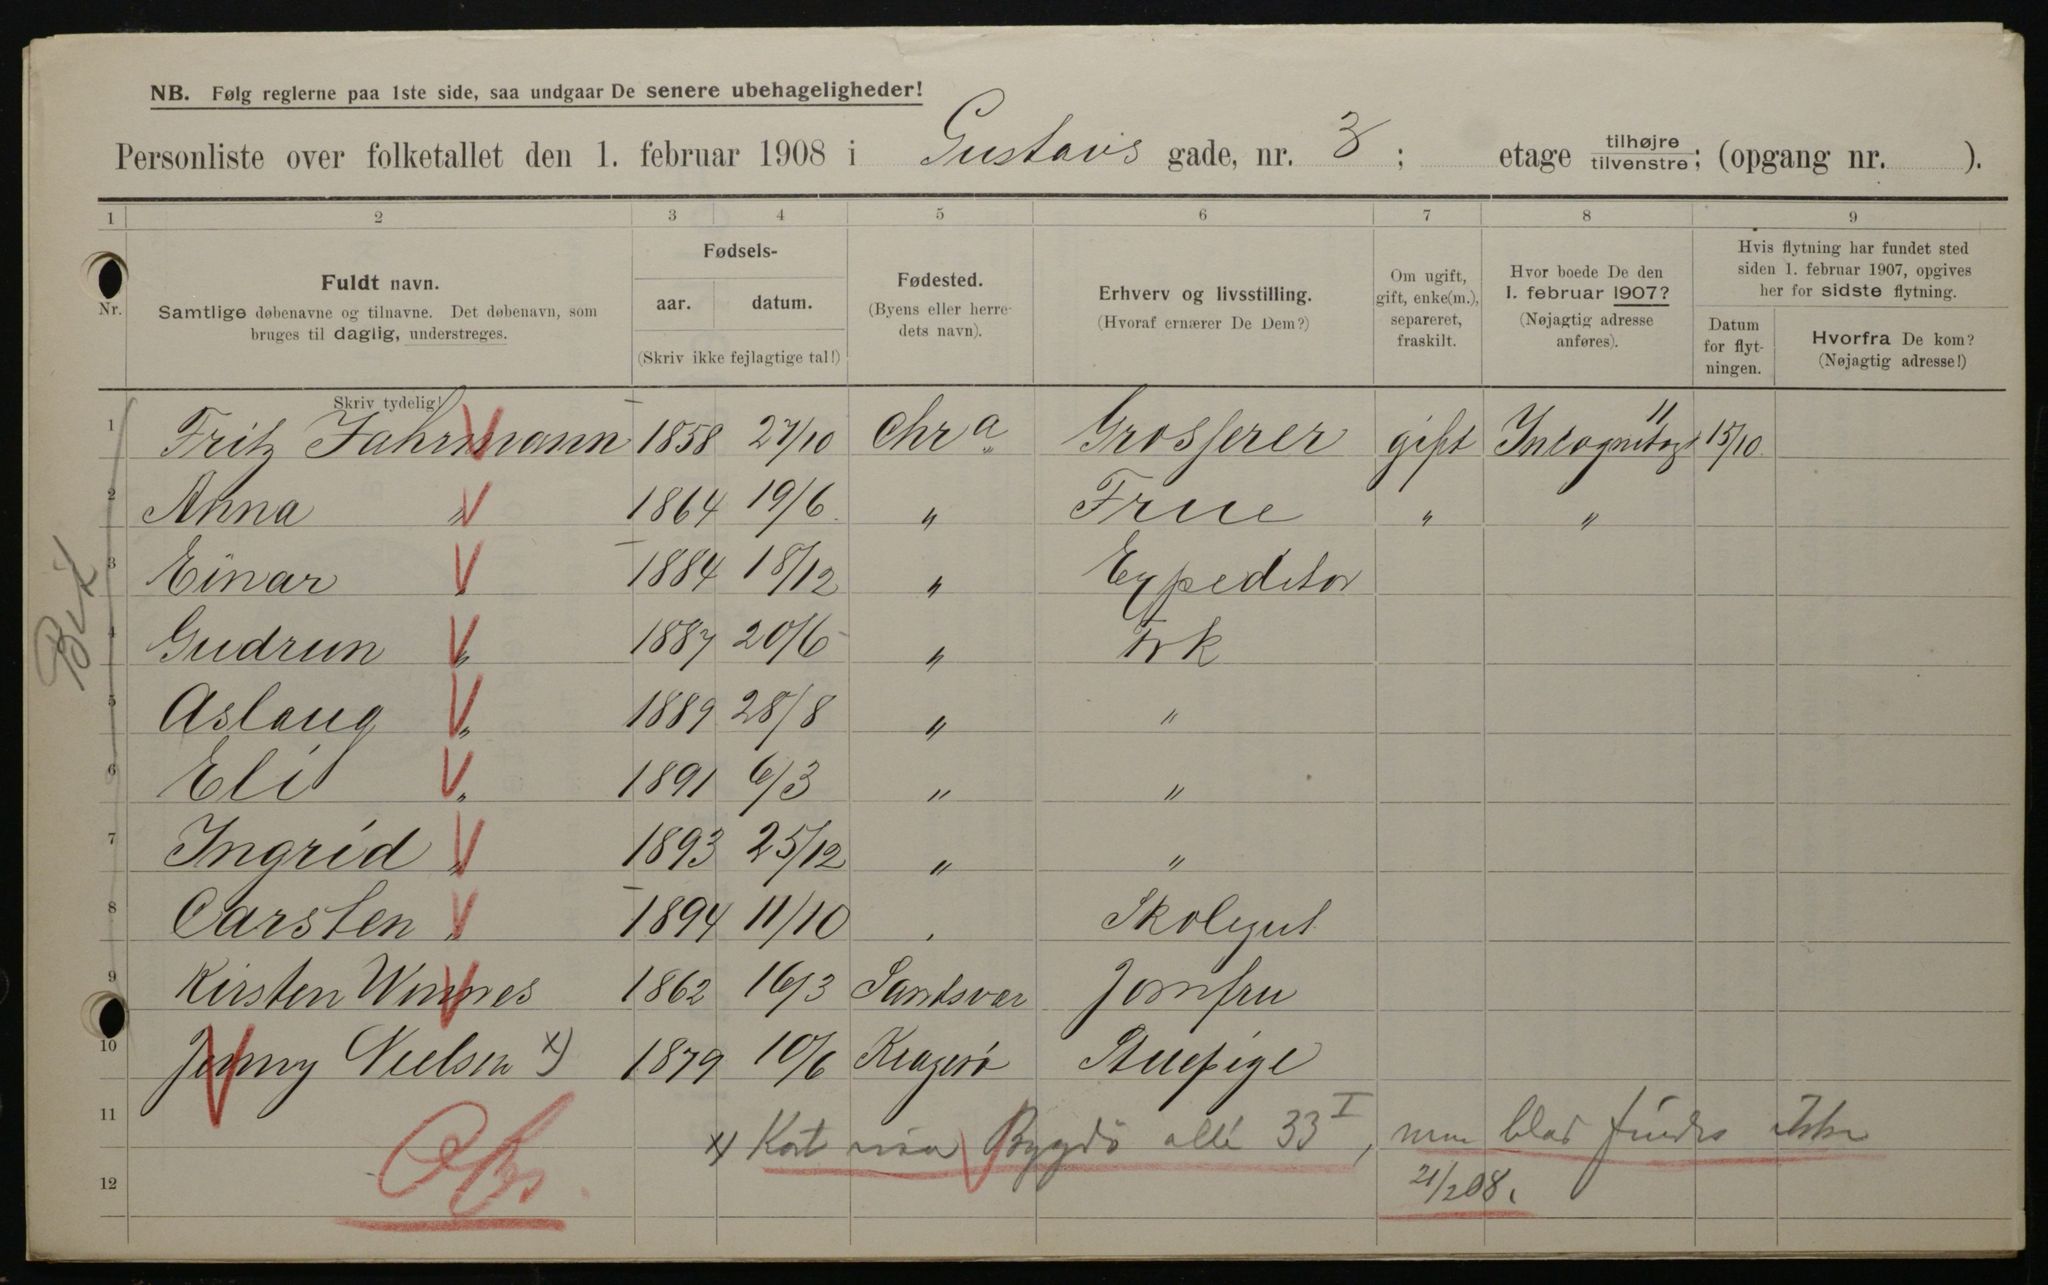 NB. Følg reglerne paa 1ste side, saa undgaar De senere ubehageligheder!
Personliste over folketallet den 1. februar 1908 i Gustavs gade, nr. 3; etage tilhøjre tilvenstre; (opgang nr. ).
1 2 3 4 5 6 7 8 9
Nr.
Fuldt navn.
Samtlige døbenavne og tilnavne. Det døbenavn, som
bruges til daglig, understreges.
Skriv tydelig!
Fødsels-
aar. datum.
(Skriv ikke fejlagtige tal!)
Fødested.
(Byens eller herre-
dets navn).
Erhverv og livsstilling.
(Hvoraf ernærer De Dem?)
Om ugift,
gift, enke(m.),
separeret,
fraskilt.
Hvor boede De den
1. februar 1907?
(Nøjagtig adresse
anføres).
Hvis flytning har fundet sted
siden 1. februar 1907, opgives
her for sidste flytning.
Datum
for flyt-
ningen.
Hvorfra De kom?
(Nøjagtig adresse!)
1 Fritz Fahrmann 1858 27/10 Chr a Grosserer gift Incognitogt 11 15/10
2 Anna " 1864 19/6 " Frue " "
3 Einar " 1884 18/12 " Expeditør
4 Gudrun " 1887 20/6 " Frk
5 Aslaug " 1889 28/8 " "
6 Eli " 1891 6/3 " "
7 Ingrid " 1893 25/12 " "
8 Carsten " 1894 11/10 " Skolegut
9 Kirsten Winnes 1862 16/3 Sandsvær Jomfru
10 Jenny Nielsen x) 1879 10/6 Kragerø Stuepige
11 x) Kort viser Bygdø allé 33 I, men blad findes ikke
12 Obs. 21/2 08.